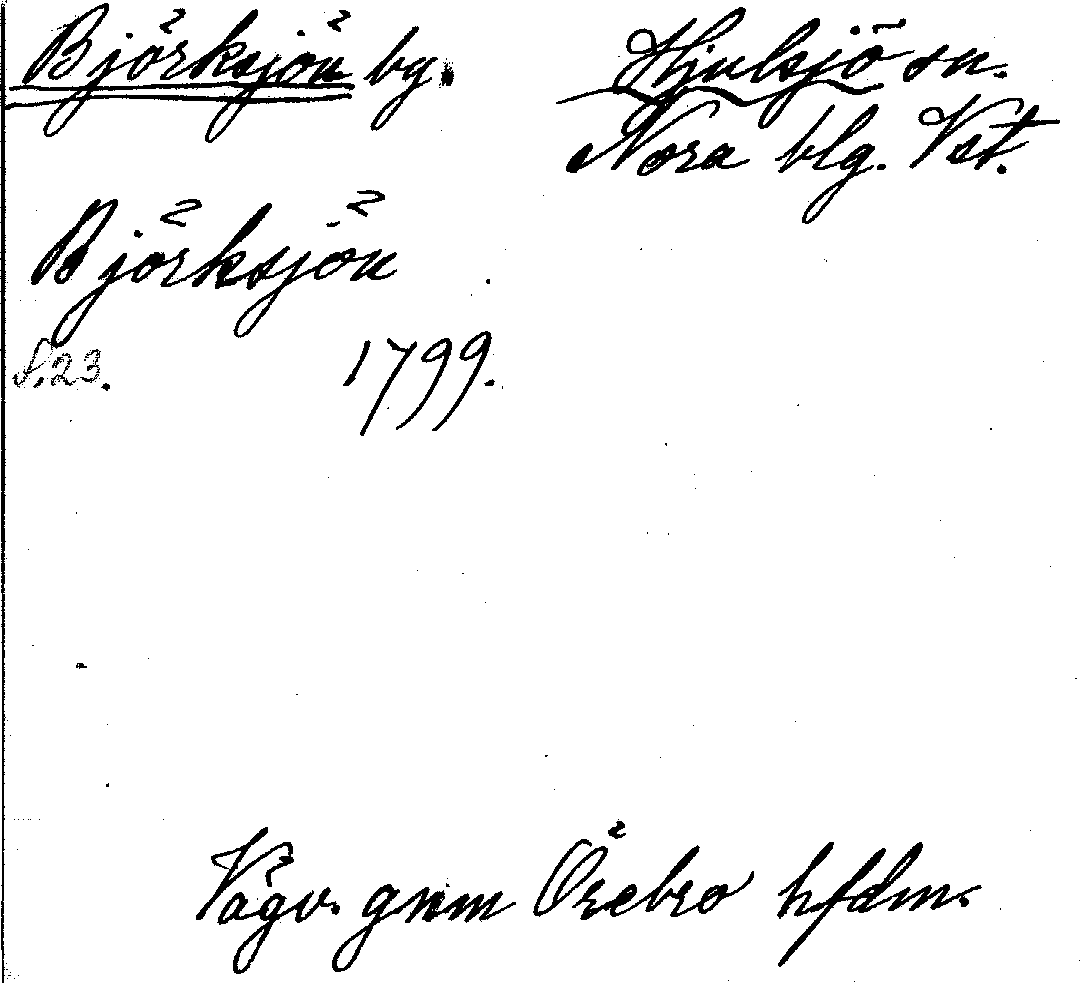 Björksjön by.
Hjulsjö sn.
Nora blg. Vst.
Björksjön
S. 23. 1799.
Vägv. gnm Örebro hfdm.